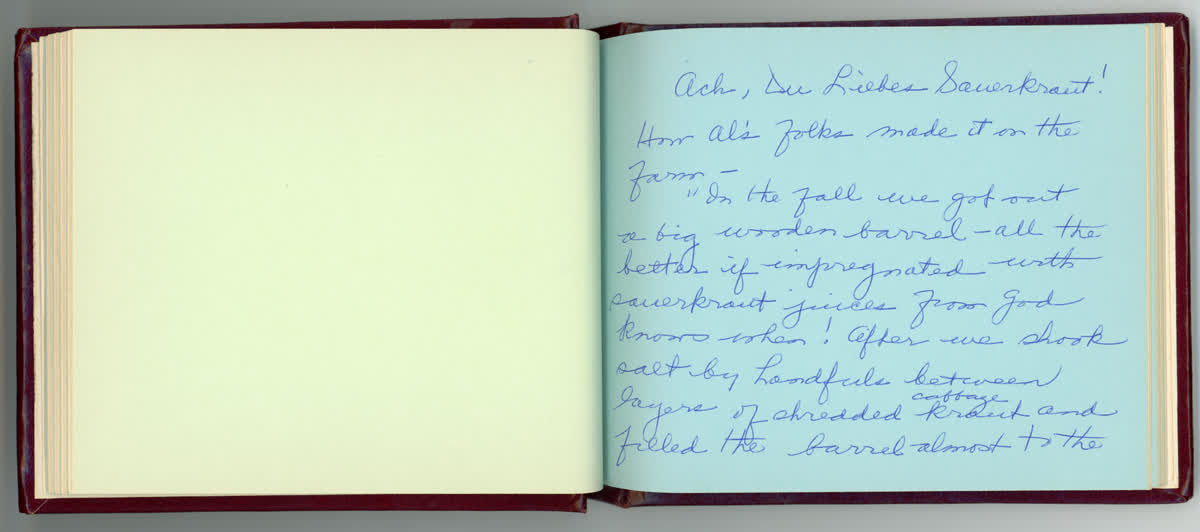 Ach, Du Liebes Sauerkraut!
How Al's folks made it on the
farm –
"In the fall we got out
a big wooden barrel – all the
better if impregnated with
sauerkraut juices from God
knows when! After we shook
salt by handfuls between
cabbage
layers of shredded kraut and
filled the barrel almost to the